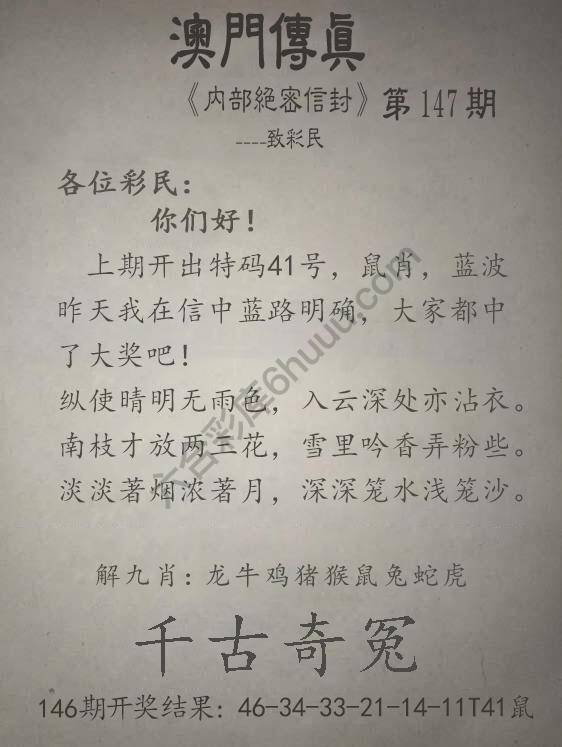 澳門傳眞
《内部絕密信封》第147期
----致彩民
各位彩民：
你们好！
上期开出特码41号，鼠肖，蓝波
昨天我在信中蓝路明确，大家都中
了大奖吧！
纵使晴明无雨色，入云深处亦沾衣。
南枝才放两三花，雪里吟香弄粉些。
淡淡著烟浓著月，深深笼水浅笼沙。
六合彩库6huuu.com
解九肖：龙牛鸡猪猴鼠兔蛇虎
千古奇冤
146期开奖结果：46-34-33-21-14-11T41鼠